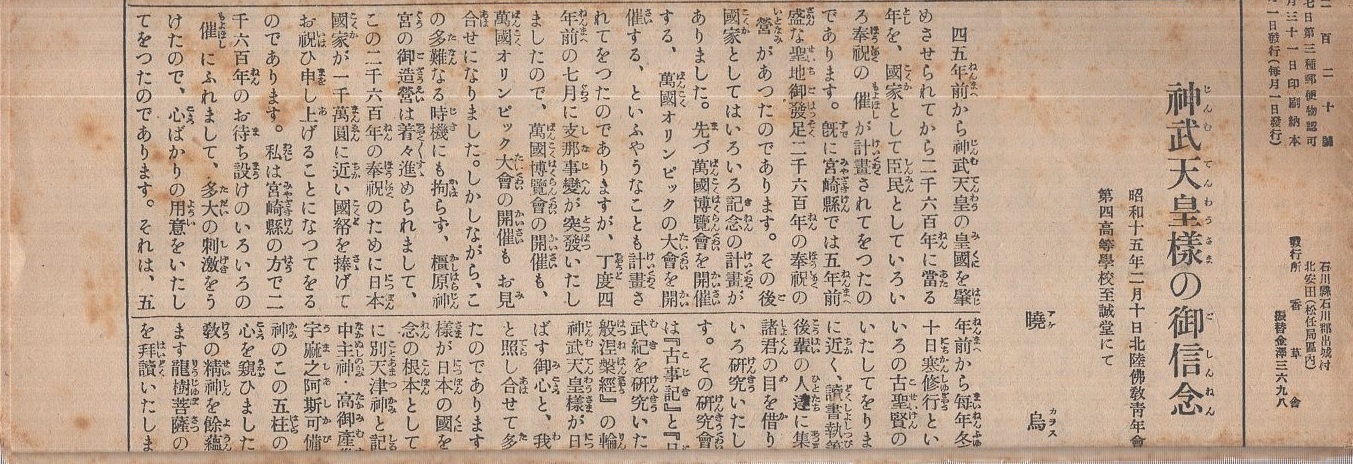 二百二十號
七日第三種郵便物認可
月三十一日印刷納本
月一日發行(每月一日發行)
石川縣石川郡出城村
北安田(松任局區內)
發行所 香草會
振替金澤三六九八
神武天皇樣の御信念
昭和十五年二月十日北陸佛敎靑年會
第四高等學校至誠堂にて
曉烏
四五年前から神武天皇の皇國を肇
めさせられてから二千六百年に當る
年を、國家として臣民としていろい
ろ奉祝の催が計畫されてをつたの
であります。旣に宮崎縣では五年前
盛な聖地御發足二千六百年の奉祝の
營があつたのであります。その後
國家としてはいろいろ記念の計畫が
ありました。先づ萬國博覽會を開催
する、萬國オリンピックの大會を開
催する、といふやうなことも計畫さ
れてをつたのでありますが、丁度四
年前の七月に支那事變が突發いたし
ましたので、萬國博覽會の開催も、
萬國オリンピック大會の開催もお見
合せになりました。しかしながら、こ
の多難なる時機にも拘らず、橿原神
宮の御造營は着々進められまして、
この二千六百年の奉祝のために日本
國家が一千萬圓に近い國帑を捧げて
お祝ひ申し上げることになつてをる
のであります。私は宮崎縣の方で二
千六百年のお待ち設けのいろいろの
催にふれまして、多大の刺激をう
けたので、心ばかりの用意をいたし
てをつたのであります。それは、五
年前から每年冬
十日寒修行とい
いろの古聖賢の
いたしてをりま
に近く、讀書執筆
後輩の人達に集
諸君の目を借り
いろ研究いたし
す。その研究會
は『古事記』と『日
武紀を研究いた
般涅槃經』の輪
神武天皇樣が日
ばす御心と、我
と照し合せて多
たのであります
樣が日本の國を
念の根本として
に別天津神と記
中主神・高御產
宇麻志阿斯可備
神のこの五柱の
心を窺ひました
敎の精神を餘蘊
ます龍樹菩薩の
を拜讀いたしま